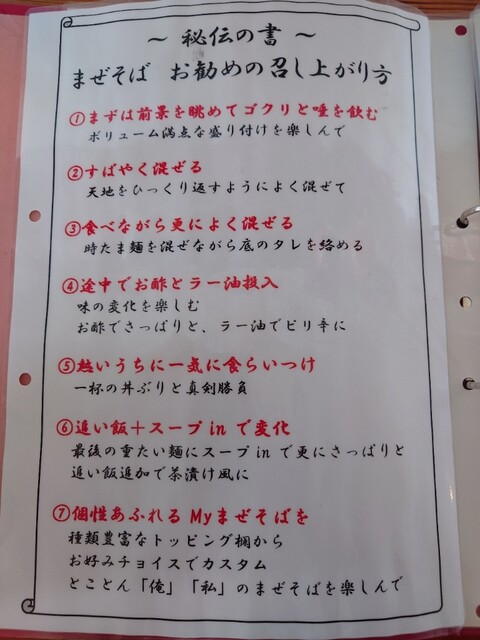 ～ 秘伝の書 ～
まぜそば お勧めの召し上がり方
①まずは前景を眺めてゴクリと唾を飲む
ボリューム満点な盛り付けを楽しんで
②すばやく混ぜる
天地をひっくり返すようによく混ぜて
③食べながら更によく混ぜる
時たま麺を混ぜながら底のタレを絡める
④途中でお酢とラー油投入
味の変化を楽しむ
お酢でさっぱりと、ラー油でピリ辛に
⑤熱いうちに一気に食らいつけ
一杯の丼ぶりと真剣勝負
⑥追い飯＋スープinで変化
最後の重たい麺にスープinで更にさっぱりと
追い飯追加で茶漬け風に
⑦個性あふれるMyまぜそばを
種類豊富なトッピング欄から
お好みチョイスでカスタム
とことん「俺」「私」のまぜそばを楽しんで